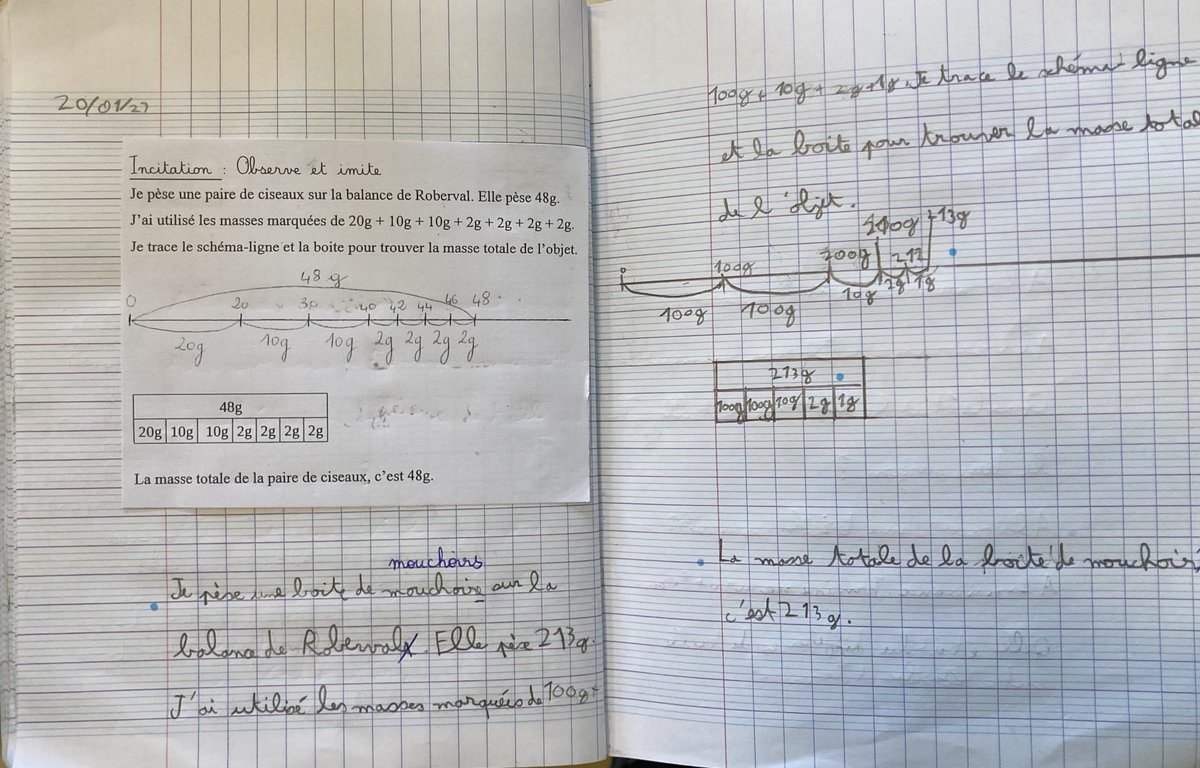 20/01/23
Incitation : Observe et imite
Je pèse une paire de ciseaux sur la balance de Roberval. Elle pèse 48g.
J'ai utilisé les masses marquées de 20g + 10g + 10g + 2g + 2g + 2g + 2g.
Je trace le schéma-ligne et la boite pour trouver la masse totale de l'objet.
48 g
0 20 30 40 42 44 46 48
20g 10g 10g 2g 2g 2g 2g
48g
20g 10g 10g 2g 2g 2g 2g
La masse totale de la paire de ciseaux, c'est 48g.
mouchoirs
Je pèse une boite de mouchoirs sur la
balance de Roberval. Elle pèse 213g.
J'ai utilisé les masses marquées de 100g +
100g + 10g + 2g + 1g. Je trace le schéma ligne
et la boite pour trouver la masse total
de l'objet.
210g 213g
0 100g 200g 212
100g 100g 10g 2g 1g
213g
100g 100g 10g 2g 1g
La masse totale de la boite de mouchoirs,
c'est 213g.